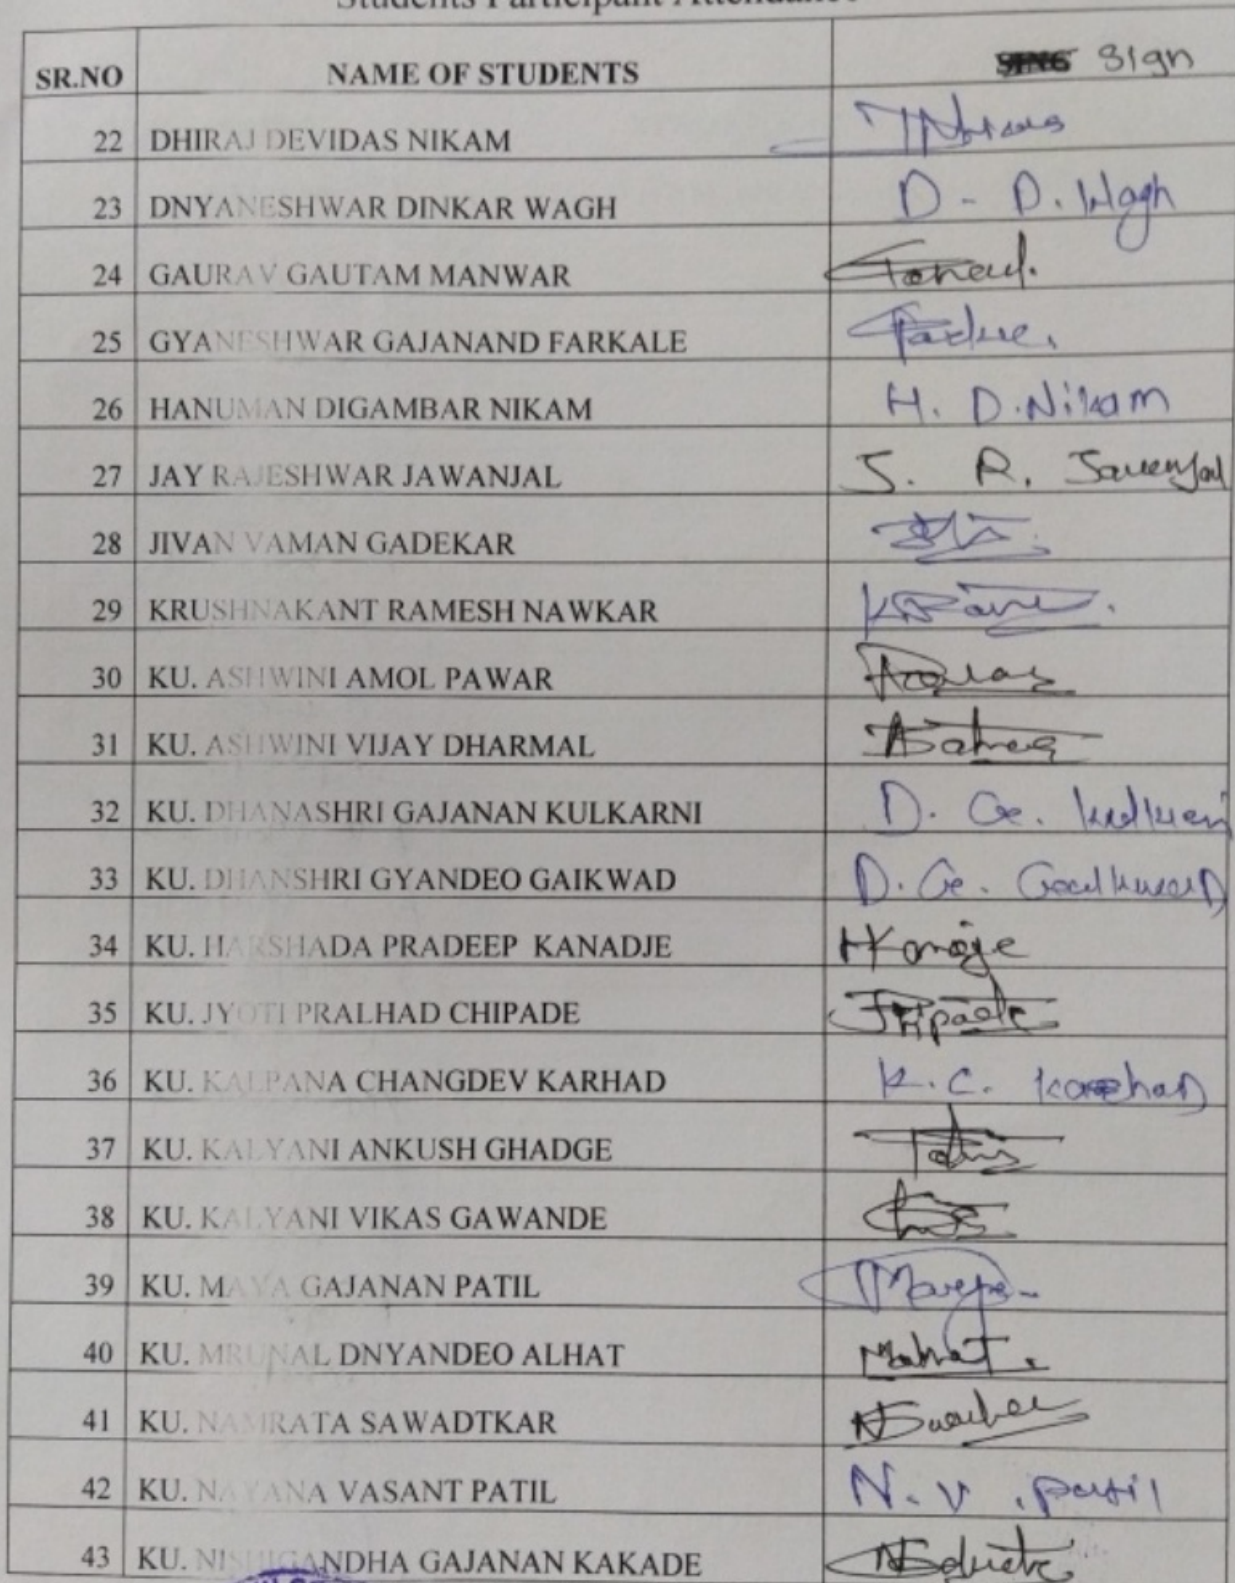 Students Participant Attendance
SR.NO NAME OF STUDENTS Sign
22 DHIRAJ DEVIDAS NIKAM
23 DNYANESHWAR DINKAR WAGH D. D. Wagh
24 GAURAV GAUTAM MANWAR
25 GYANESHWAR GAJANAND FARKALE
26 HANUMAN DIGAMBAR NIKAM H. D. Nikam
27 JAY RAJESHWAR JAWANJAL J. R. Jawanjal
28 JIVAN VAMAN GADEKAR
29 KRUSHNAKANT RAMESH NAWKAR
30 KU. ASHWINI AMOL PAWAR
31 KU. ASHWINI VIJAY DHARMAL
32 KU. DHANASHRI GAJANAN KULKARNI D. G.
33 KU. DHANSHRI GYANDEO GAIKWAD D. G.
34 KU. HARSHADA PRADEEP KANADJE
35 KU. JYOTI PRALHAD CHIPADE
36 KU. KALPANA CHANGDEV KARHAD K. C. Karhad
37 KU. KALYANI ANKUSH GHADGE
38 KU. KALYANI VIKAS GAWANDE
39 KU. MAYA GAJANAN PATIL
40 KU. MRUNAL DNYANDEO ALHAT
41 KU. NAMRATA SAWADTKAR
42 KU. NAYANA VASANT PATIL N. V. Patil
43 KU. NISHIGANDHA GAJANAN KAKADE